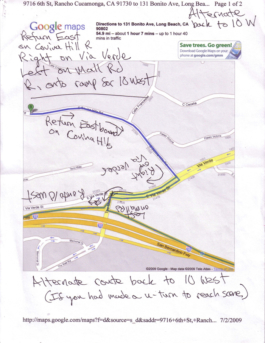 9716 6th St, Rancho Cucamonga, CA 91730 to 131 Bonito Ave, Long Bea... Page 1 of 2
Alternate
back to 10 W
Google maps
Directions to 131 Bonito Ave, Long Beach, CA
90802
54.9 mi – about 1 hour 7 mins – up to 1 hour 40
mins in traffic
Save trees. Go green!
Download Google Maps on your
phone at google.com/gmm
Return East
on Covina Hill R
Right on Via Verde
Left on Mall Rd
R, onto ramp for 10 West
Return Eastbound
on Covina Hills
Right
Via Verde
©2009 Google - Map data ©2009 Tele Atlas
Alternate route back to 10 West
(If you had made a u-turn to reach Save.)
http://maps.google.com/maps?f=d&source=s_d&saddr=9716+6th+St,+Ranch... 7/2/2009